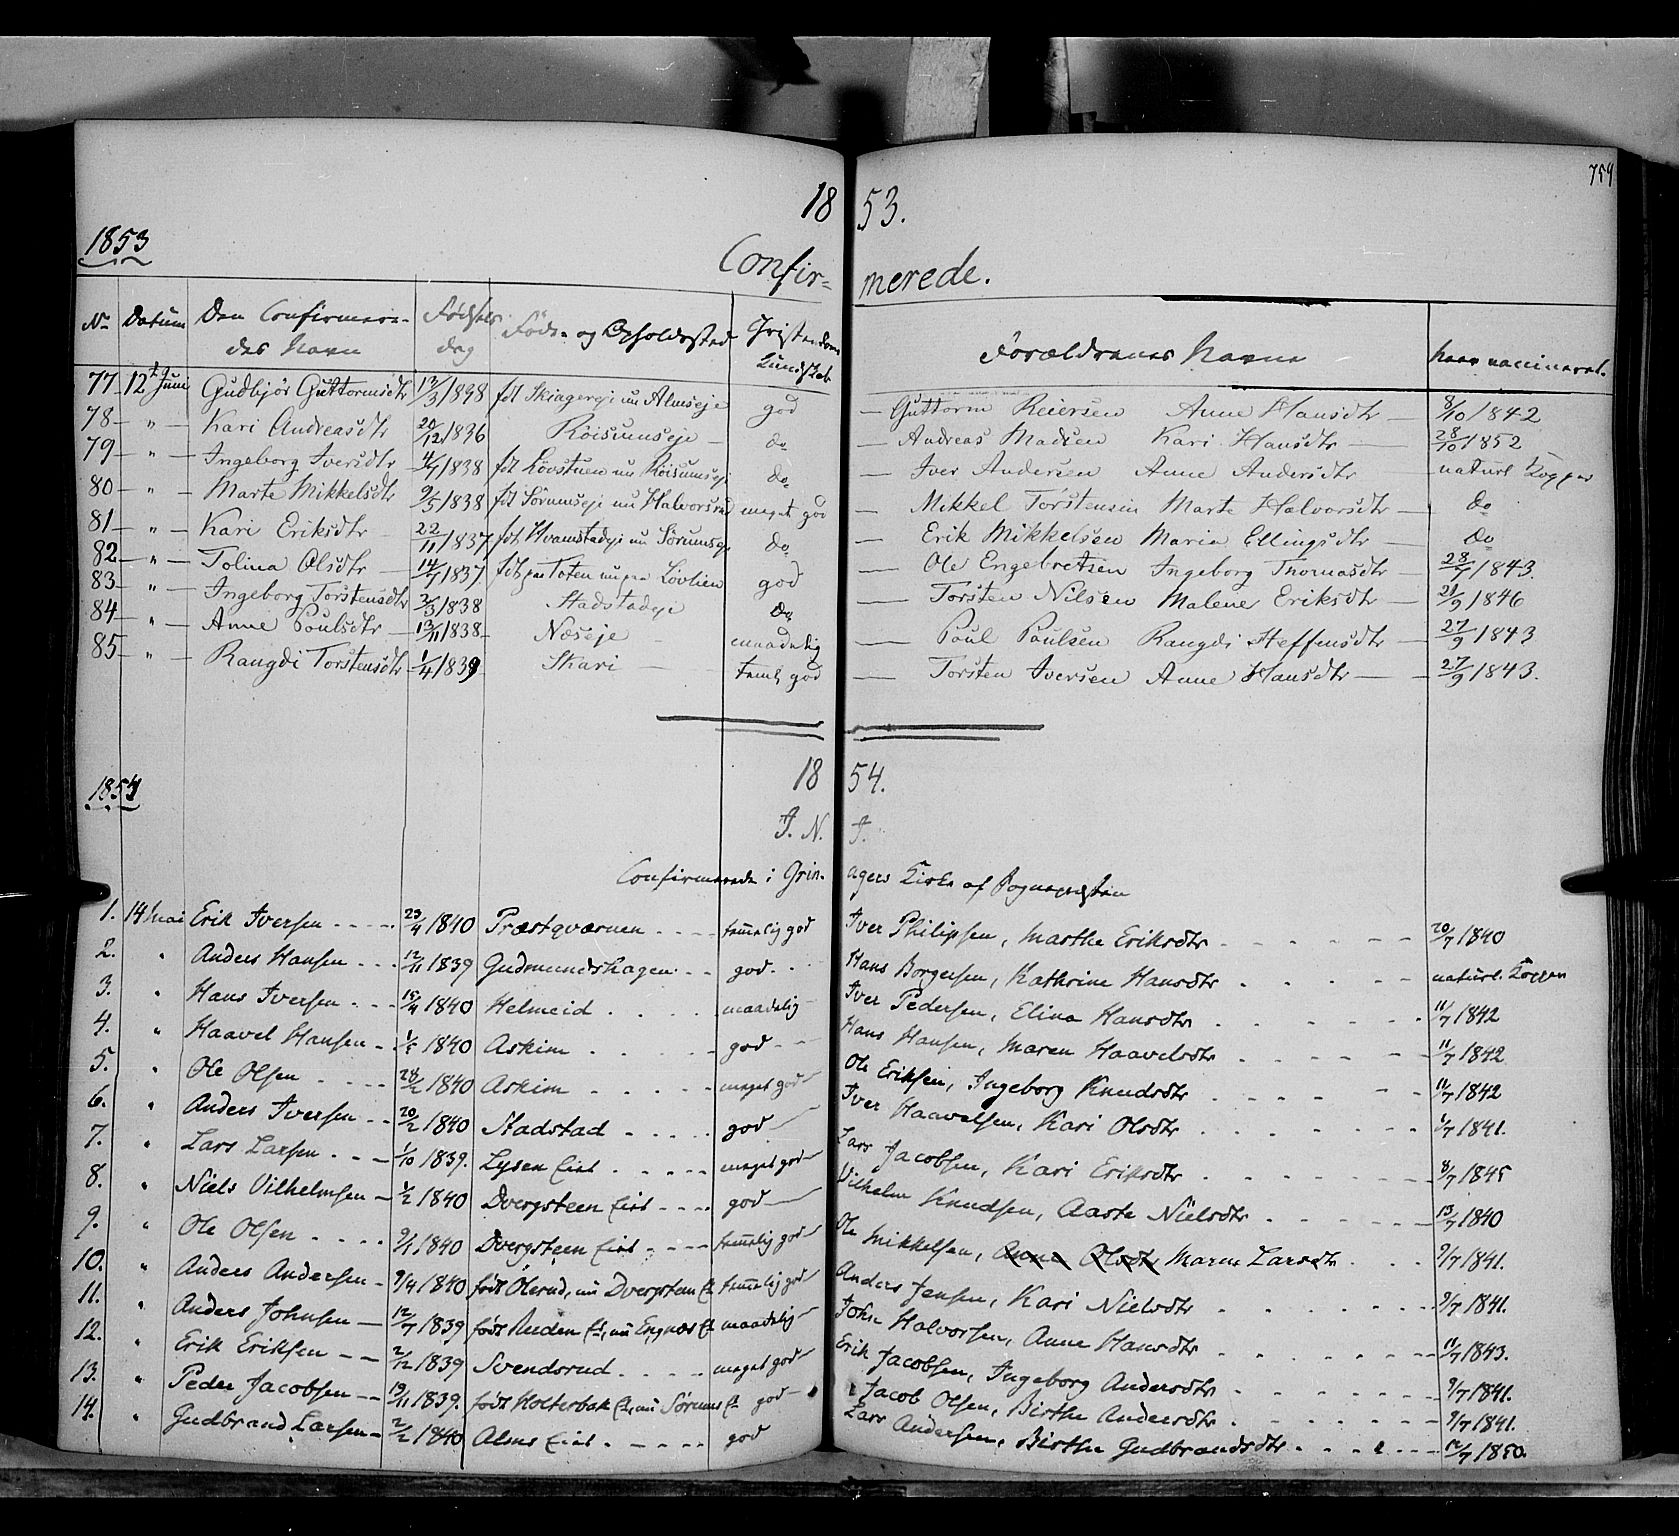 754
18 53.
1853
Confir- merede.
No Datum Den Confirmere- Fødsels Føde- og Opholdssted Christendoms Forældrenes Navne naar vaccineret.
des Navn dag Kundskab
77 12te Juni Gudbjør Guttormsdtr 13/3 1838 fdt Skiagereje nu Almseje god — Guttorm Reiersen Anne Hansdtr — 8/10 1842
78 — " — Kari Andreasdtr 20/12 1836 Röisumseje — do — Andreas Madsen Kari Hansdtr — 28/10 1852
79 — " — Ingeborg Iversdtr 4/4 1838 fdt Lövstuen nu Röisumseje do — Iver Andersen Anne Andersdtr — naturl Kopper
80 — " — Marte Mikkelsdtr 9/5 1838 fdt Sörumseje nu Halvorsrud meget god — Mikkel Torstensen Marte Halvorsdtr — do
81 — " — Kari Eriksdtr 22/11 1837 fdt Hvamstadeje nu Sörumseje do — Erik Mikkelsen Maria Ellingsdtr — do
82 — " — Tolina Olsdtr — 14/7 1837 fdt paa Toten nu paa Lövlien god — Ole Engebretsen Ingeborg Thomasdtr — 28/7 1843.
83 — " — Ingeborg Torstensdtr 2/3 1838 Stadstadeje do — Torsten Nilsen Malene Eriksdtr — 21/9 1846
84 — " — Anne Poulsdtr — 13/11 1838 — Næseje — maadelig — Poul Poulsen Rangdi Steffensdtr — 27/9 1843
85 — " — Rangdi Torstensdtr 1/4 1839 Skari — teml. god — Torsten Iversen Anne Hansdtr — 27/9 1843.
1854 18 54.
I. N. I.
Confirmerede i Grin- agers Kirke af Sognepresten
1. 14 Mai Erik Iversen - - - - 23/4 1840 Præstqværnen . - - - temmelig god Iver Philipsen, Marthe Eriksdtr - - - - 20/7 1840
2. " Anders Hansen - - - 12/11 1839 Gudmundshagen - - god - - Hans Borgersen, Kathrine Hansdtr . - - - naturl. Kopper
3. " Hans Iversen - - - 15/4 1840 Helmeid . - - - maadelig - Iver Pedersen, Eline Hansdtr . - - - - 11/7 1842
4. " Haavel Hansen - - 1/5 1840 Askim . - - - god - - Hans Hansen, Maren Haavelsdtr . - - - 11/7 1842
5. " Ole Olsen - - - - 28/2 1840 Askim - - - - meget god - Ole Eriksen, Ingeborg Knudsdtr . - - - 11/7 1842
6. " Anders Iversen - - 20/2 1840 Stadstad - - - - god — Iver Haavelsen, Kari Olsdtr . - - - - 1/7 1841.
7. " Lars Larsen - - - 1/10 1839. Lysen Eiet . - - - meget god - Lars Jacobsen, Kari Eriksdtr . - - - - 8/7 1845
8. " Niels Vilhelmsen - 1/2 1840 Dvergsteen Eiet - - - god — Vilhelm Knudsen, Aaste Nielsdtr . - - - 13/7 1840
9. " Ole Olsen . - - - 9/1 1840 Dvergsteen Eiet . - - - temmelig god - Ole Mikkelsen, Anne Olsdtr Maren Larsdtr . - - 9/7 1841.
10. " Anders Andersen - 9/4 1840 født Ölerud, nu Dvergsteen Et temmelig god - Anders Jensen, Kari Nielsdtr . - - - - 9/7 1841.
11. " Anders Johnsen — 12/7 1839 født Ruden Et, nu Engnæs Et maadelig - John Halvorsen, Anne Hansdtr . - - - - 11/7 1843.
12. " Erik Eriksen - - 2/12 1839 Svendsrud . - - - meget god - Erik Jacobsen, Ingeborg Andersdtr . - - - 9/7 1841.
13. " Peder Jacobsen - - 19/11 1839. født Holterbak Et, nu Sörums Et god - Jacob Olsen, Birthe Andersdtr . - - - 9/7 1841.
14. " Gudbrand Larsen - 2/2 1840 Alms Eiet . - - - god Lars Andersen, Birthe Gudbrandsdtr . - - - 12/7 1850.